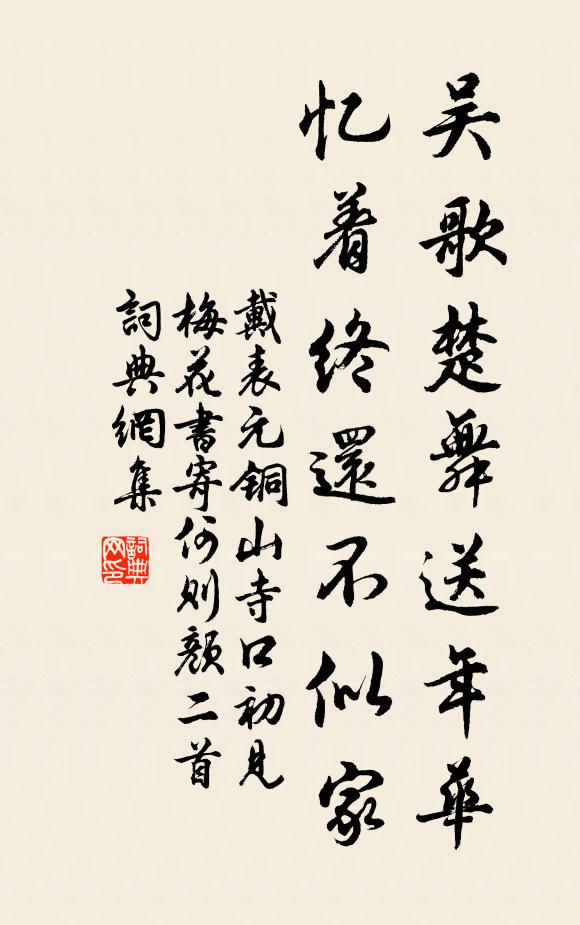 吴歌楚舞送年華
忆着终還不似家
戴表元銅山寺口初見
梅花書寄何则顏二首
詞典網集
詞典网印